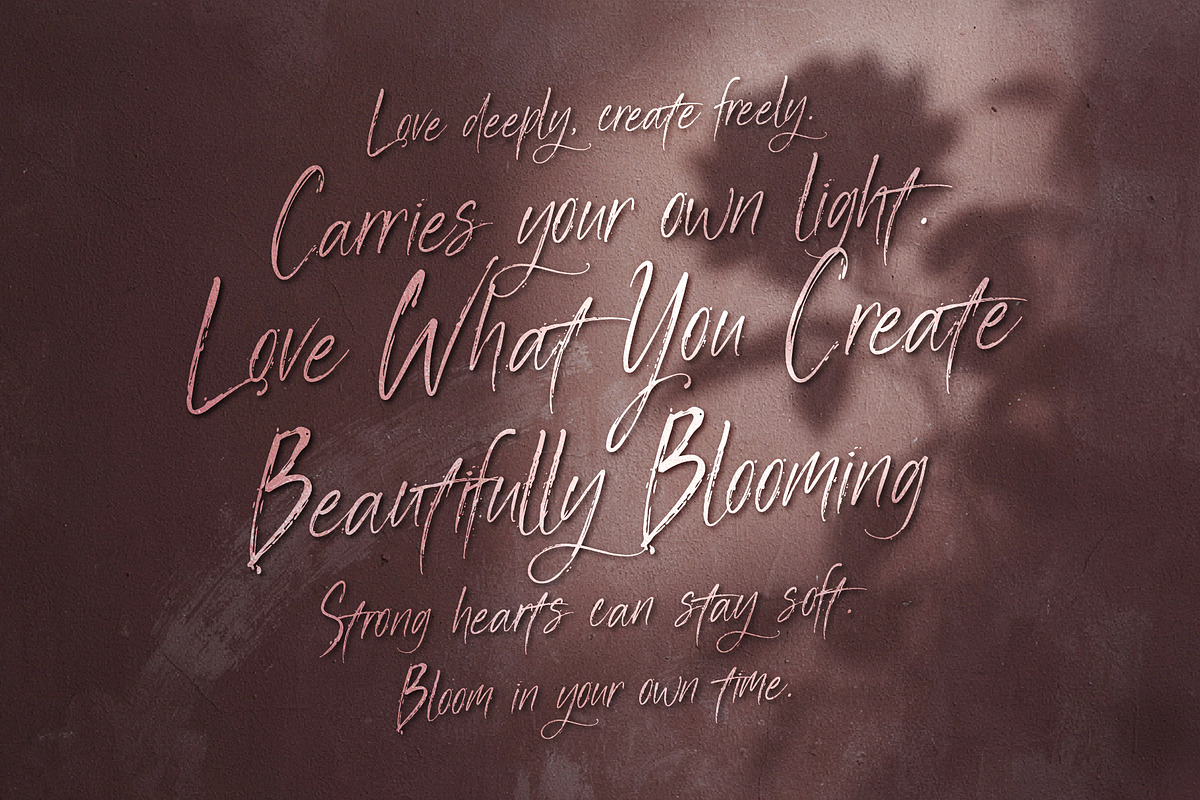 Love deeply, create freely.
Carries your own light.
Love What You Create
Beautifully Blooming
Strong hearts can stay soft.
Bloom in your own time.